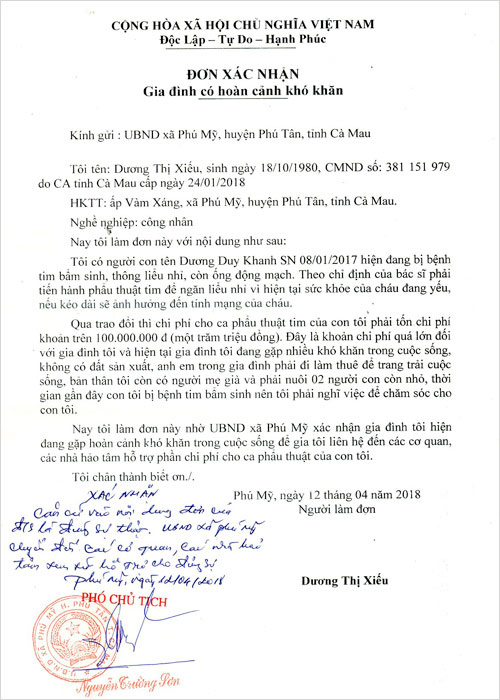 CỘNG HÒA XÃ HỘI CHỦ NGHĨA VIỆT NAM
Độc Lập – Tự Do – Hạnh Phúc
ĐƠN XÁC NHẬN
Gia đình có hoàn cảnh khó khăn
Kính gửi : UBND xã Phú Mỹ, huyện Phú Tân, tỉnh Cà Mau
Tôi tên: Dương Thị Xiếu, sinh ngày 18/10/1980, CMND số: 381 151 979
do CA tỉnh Cà Mau cấp ngày 24/01/2018
HKTT: ấp Vàm Xáng, xã Phú Mỹ, huyện Phú Tân, tỉnh Cà Mau.
Nghề nghiệp: công nhân
Nay tôi làm đơn này với nội dung như sau:
Tôi có người con tên Dương Duy Khanh SN 08/01/2017 hiện đang bị bệnh
tim bẩm sinh, thông liên nhĩ, còn ống động mạch. Theo chỉ định của bác sĩ phải
tiến hành phẩu thuật tim để ngăn liều nhỉ vì hiện tại sức khỏe của cháu đang yếu,
nếu kéo dài sẽ ảnh hưởng đến tính mạng của cháu.
Qua trao đổi thì chi phí cho ca phẩu thuật tim của con tôi phải tốn chi phí
khoản trên 100.000.000 đ (một trăm triệu đồng). Đây là khoản chi phí quá lớn đối
với gia đình tôi và hiện tại gia đình tôi đang gặp nhiều khó khăn trong cuộc sống,
không có đất sản xuất, anh em trong gia đình phải đi làm thuê để trang trải cuộc
sống, bản thân tôi còn có người mẹ già và phải nuôi 02 người con còn nhỏ, thời
gian gần đây con tôi bị bệnh tim bẩm sinh nên tôi phải nghĩ việc để chăm sóc cho
con tôi.
Nay tôi làm đơn này nhờ UBND xã Phú Mỹ xác nhận gia đình tôi hiện
đang gặp hoàn cảnh khó khăn trong cuộc sống để gia tôi liên hệ đến các cơ quan,
các nhà hảo tâm hỗ trợ phần chi phí cho ca phẩu thuật của con tôi.
Tôi chân thành biết ơn./.
Phú Mỹ, ngày 12 tháng 04 năm 2018
Người làm đơn
XÁC NHẬN
Căn cứ vào nội dung đơn của
là đúng sự thật. UBND xã Phú Mỹ
chuyển đến các cơ quan, các nhà hảo
tâm xem xét hỗ trợ cho đương sự
Phú Mỹ, ngày 12/04/2018
Dương Thị Xiếu
PHÓ CHỦ TỊCH
U.B.N.D XÃ PHÚ MỸ H. PHÚ TÂN T. CÀ MAU
Nguyễn Trường Sơn